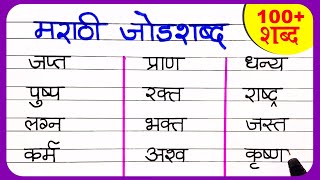 मराठी जोडशब्द
100+
शब्द
जप्त प्राण धन्य
पुष्प रक्त राष्ट्र
लग्न भक्त जस्त
कर्म अश्व कृष्ण